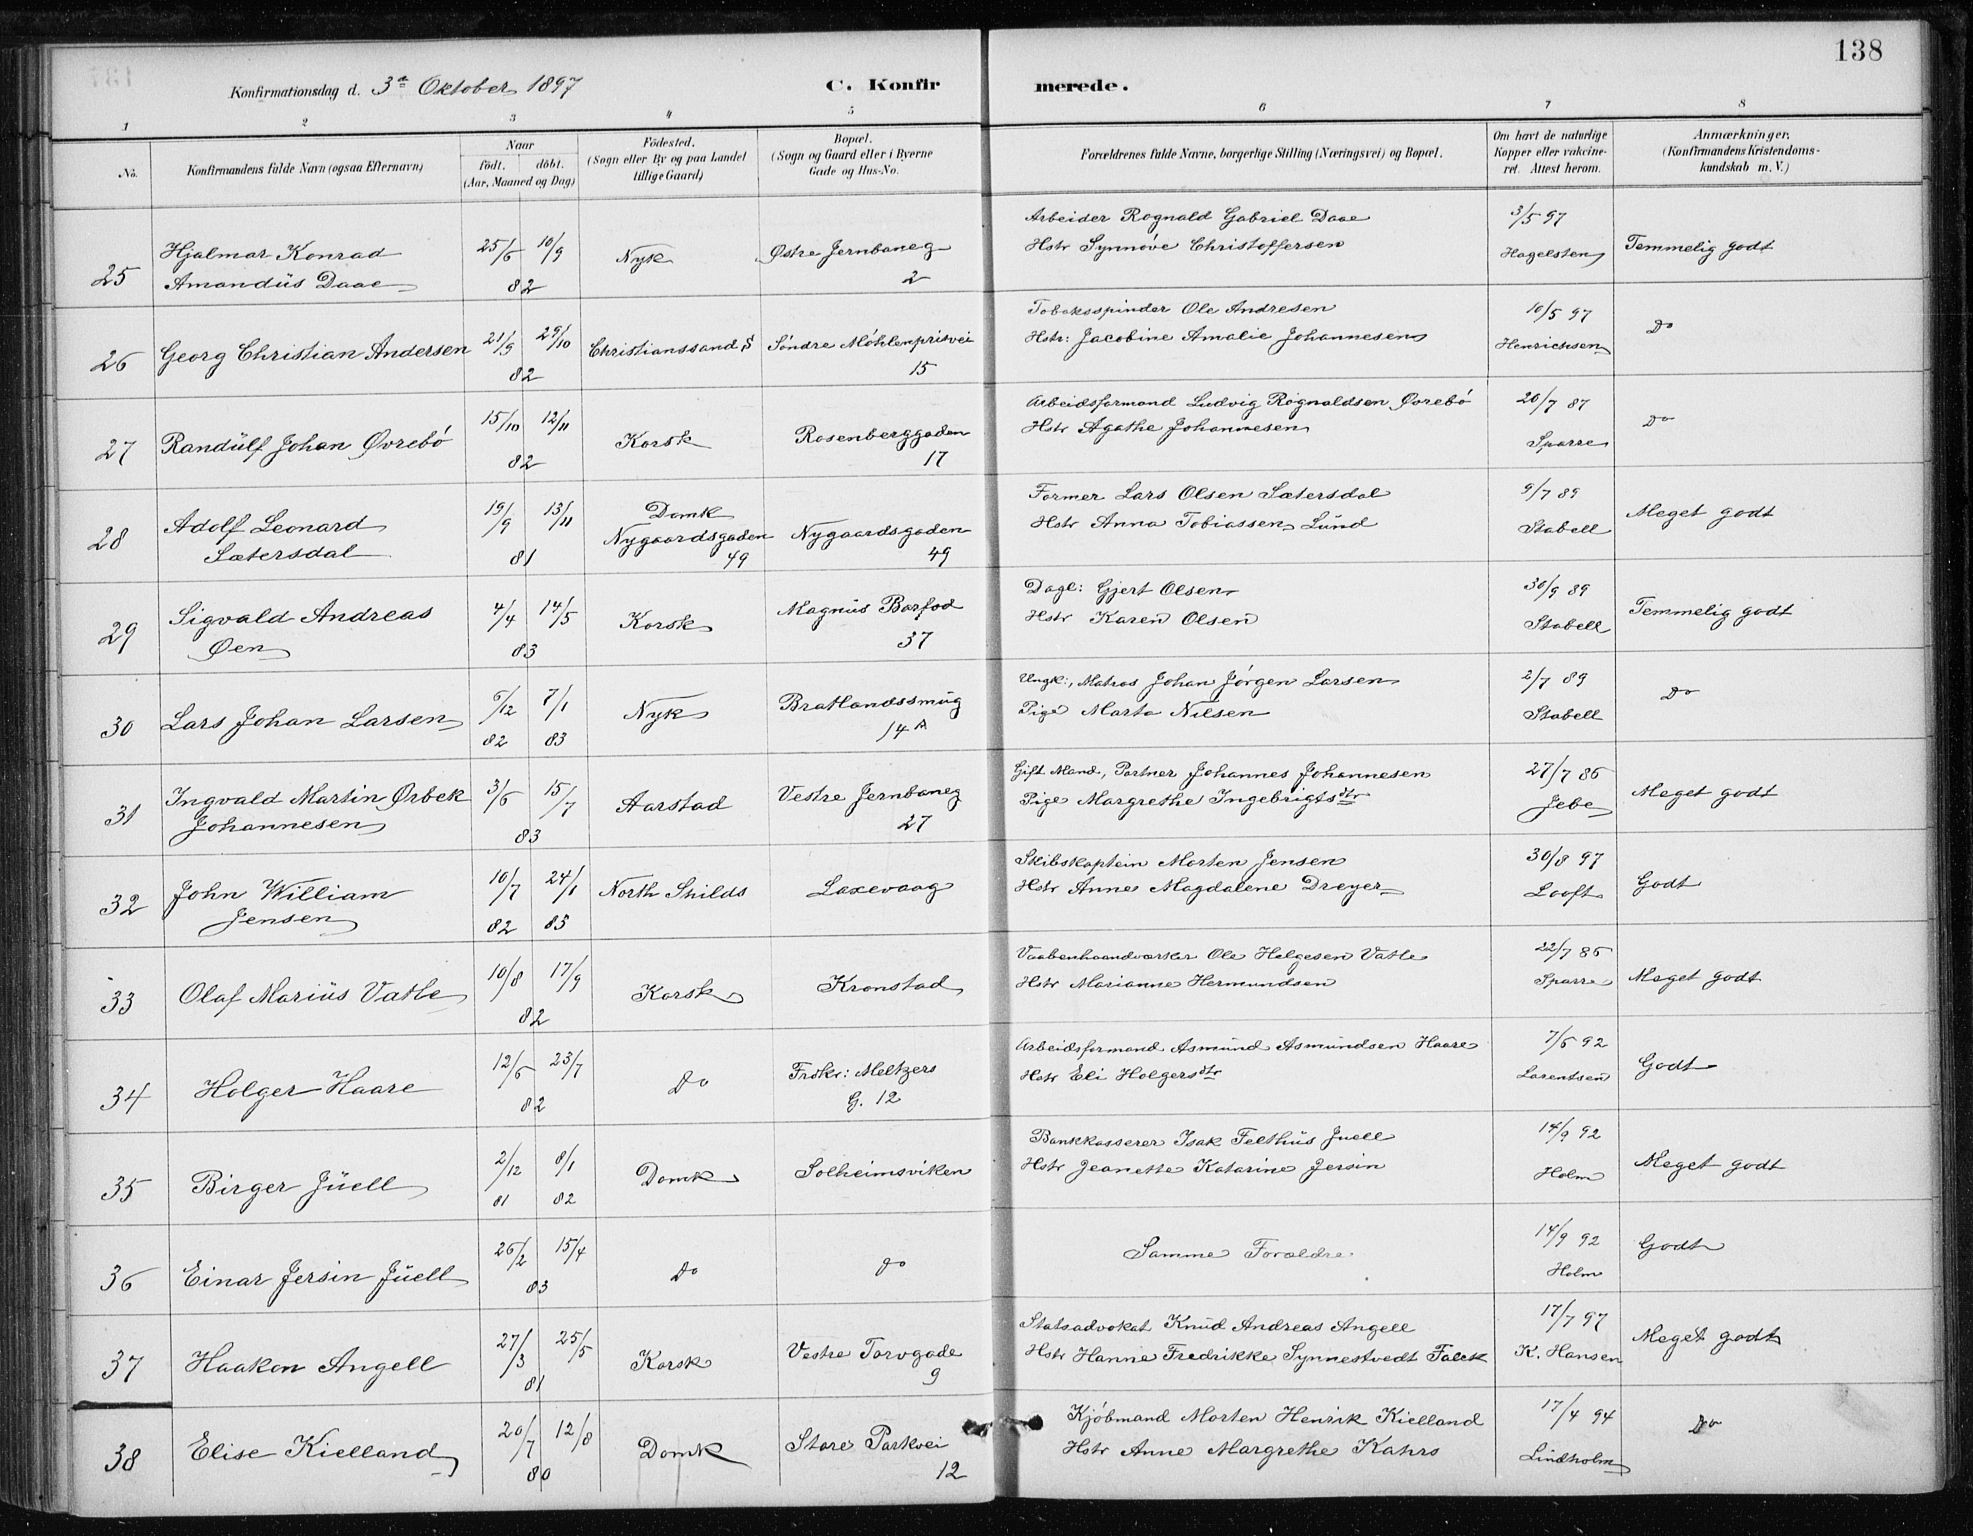 138
Konfirmationsdag d. 3die Oktober 1897
C. Konfirmerede.
1 2 3 4 5 6 7 8
No.
Konfirmandens fulde Navn (ogsaa Efternavn)
Naar
födt. döbt.
(Aar, Maaned og Dag)
Födested.
(Sogn eller By og paa Landet
tillige Gaard)
Bopæl.
(Sogn og Gaard eller i Byerne
Gade og Hus-No.
Forældrenes fulde Navne, borgerlige Stilling (Næringsvei) og Bopæl.
Om havt de naturlige
Kopper eller vakcine-
ret. Attest herom.
Anmærkninger.
(Konfirmandens Kristendoms-
kundskab m. V.)
25 Hjalmar Konrad
Amandus Daae
25/6 10/9
82
Nyk
Østre Jernbaneg
2
Arbeider Rognald Gabriel Daae
Hstr Synnøve Christoffersen
3/5 97
Hagelsten
Temmelig godt
26 Georg Christian Andersen
21/9 29/10
82
Christianssand S
Söndre Möhlenprisvei
15
Tobaksspinder Ole Andresen
Hstr: Jacobine Amalie Johannesen
10/5 97
Henrichsen
Do
27 Randulf Johan Øvrebö
15/10 12/11
82
Korsk
Rosenberggaden
17
Arbeidsformand Ludvig Rognaldsen Øvrebö
Hstr Agathe Johannesen
20/7 87
Sparre
Do
28 Adolf Leonard
Sætersdal
19/9 13/11
81
Domk
Nygaardsgaden
49
Nygaardsgaden
49
Former Lars Olsen Sætersdal
Hstr Anna Tobiassen Lund
9/7 89
Stabell
Meget godt
29 Sigvald Andreas
Øen
4/4 14/5
83
Korsk
Magnus Barfod
37
Dagl: Gjert Olsen
Hstr Karen Olsen
30/9 89
Stabell
Temmelig godt
30 Lars Johan Larsen
6/12 7/1
82 83
Nyk
Bratlandssmug
14 A
Ungk:, Matros Johan Jörgen Larsen
Pige Marta Nilsen
2/7 89
Stabell
Do
31 Ingvald Martin Ørbek
Johannesen
3/6 15/7
83
Aarstad
Vestre Jernbaneg
27
Gift Mand, Partner Johannes Johannesen
Pige Margrethe Ingebrigtsdtr
27/7 86
Jebe
Meget godt
32 John William
Jensen
10/7 24/1
82 85
North Shilds
Laxevaag
Skibskaptein Morten Jensen
Hstr Anne Magdalene Dreyer
30/8 97
Looft
Godt
33 Olaf Marius Vatle
10/8 17/9
82
Korsk
Kronstad
Vaabenhaandværker Ole Helgesen Vatle
Hstr Marianne Hermundsen
22/7 86
Sparre
Meget godt
34 Holger Haare
12/6 23/7
82
Do
Frskr: Meltzers
G. 12
Arbeidsformand Asmund Asmundsen Haare
Hstr Eli Holgersdtr
7/6 92
Larentsen
Godt
35 Birger Juell
2/12 8/1
81 82
Domk
Solheimsviken
Bankkasserer Isak Felthus Juell
Hstr Jeanette Katarine Jersin
14/9 92
Holm
Meget godt
36 Einar Jersin Juell
26/2 15/4
83
Do
Do
Samme Forældre
14/9 92
Holm
Godt
37 Haakon Angell
27/3 25/5
81
Korsk
Vestre Torvgade
9
Statsadvokat Knud Andreas Angell
Hstr Hanne Fredrikke Synnestvedt Falck
17/7 97
K. Hansen
Meget godt
38 Elise Kielland
20/7 12/8
80
Domk
Store Parkvei
12
Kjöbmand Morten Henrik Kielland
Hstr Anne Margrethe Kahrs
17/4 94
Lindholm
Do